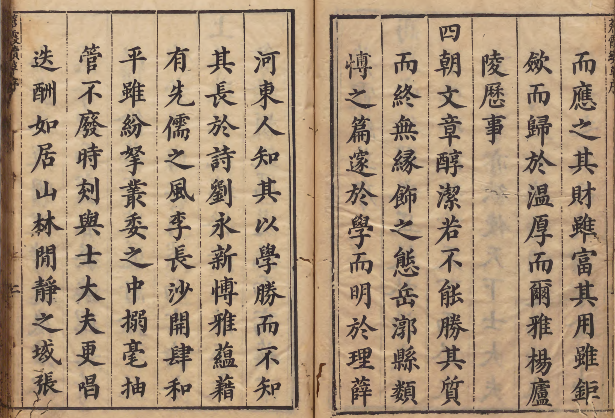 而應之其財雖富其用雖鉅
斂而歸於温厚而爾雅楊廬
陵歷事
四朝文章醇潔若不能勝其質
而終無縁飾之態岳漷縣類
博之篇邃於學而明於理薛
河東人知其以學勝而不知
其長於詩劉永新博雅蘊藉
有先儒之風李長沙開肆和
平雖紛拏叢委之中搦毫抽
管不廢時刻與士大夫更唱
迭酬如居山林閒靜之域張